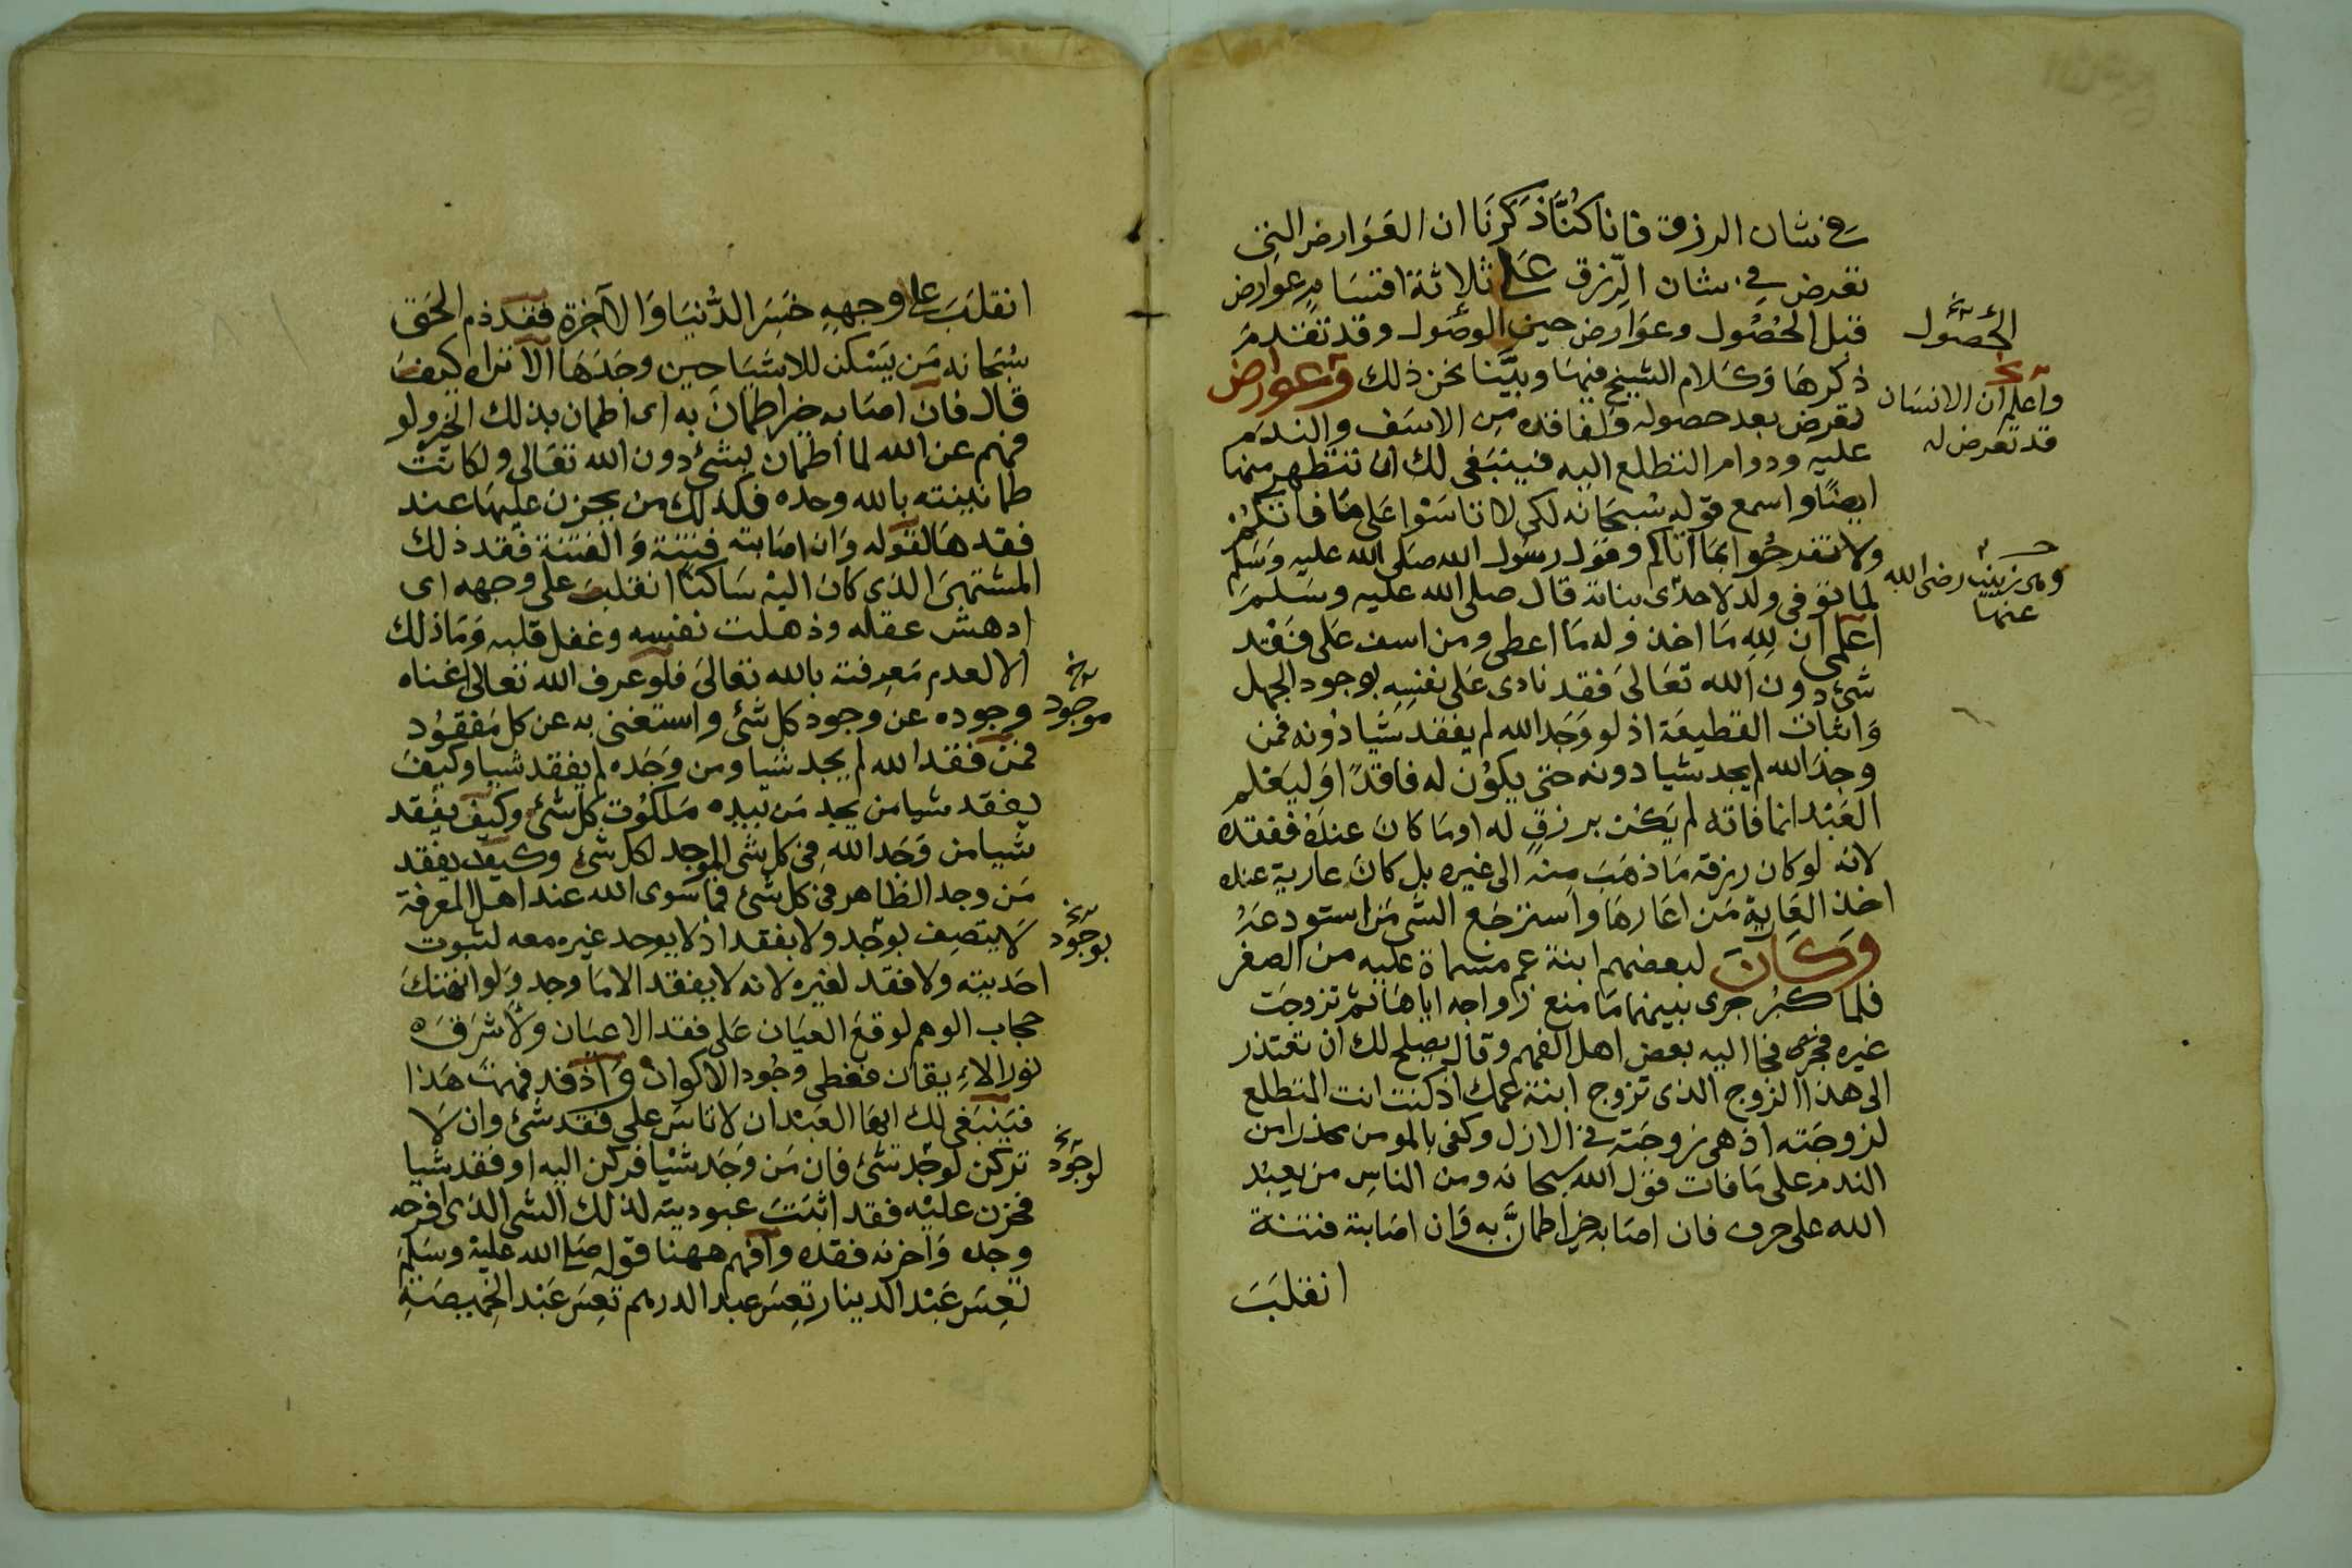 في شان الرزق فانا كُنَّا ذكرنَا ان العَوَارض التي
تعرض في شان الرّزق على ثلاثة اقسَام عوارض
قبل الحُصُول وعوَارض حين الوصُول وقد تقدم
ذكرهَا وَكلام الشيخ فيهَا وبيَّنا نحن ذلك وعوارض
تعرض بعد حصوله ونفاقده من الاسَف والندم
عليه ودوام التطلع اليه فينبَغى لك ان تتطهر منها
ايضًا واسمع قوله سُبحَانه لكى لا تاسَوْا عَلى مَا فاتكُمْ
ولا تفرحُوا بمَا اتاكم وقوَل رسُول الله صلى الله عليه وسَلم
لما توفى ولد لاحدى بناته قال صلى الله عليه وسَلمَ
اعلمى ان لله مَا اخذ وله مَا اعطى ومن اسف عَلى فَقْد
شىء دون الله تعَالىَ فقد نادى عَلى نفسِهِ بوجود الجهل
وَاثبات القطيعَة اذ لو وَجَد الله لم يفقد شَيا دُونه فمن
وجدَ الله لم يجد شيا دونه حتى يكوُن له فاقدًا وَليَعْلم
العَبْد انما فاته لم يَكُن برزقٍ له اوما كانَ عندَهُ ففقده
لانه لو كان رزقه مَا ذهَبَ منه الى غيره بل كانَ عارية عنده
اخذ العَاريةَ مَن اعَارهَا واَسترجَع الشى مَن استودعَهُ
وَكَانَ لبعضهم ابنة عم مسماة عليه من الصغر
فلما كبُر جرى بينهما مَا منع زواجه اياهَا ثم تزوجَت
غيره فجا اليه بعض اهل الفهم وقال يصلح لك ان تعتذر
الى هذا الزوج الذى تزوج ابنة عمك اذ كنت انت المتطلع
لزوجَته اذ هى زوجَته في الازل وكفى بالمومن محذرا من
الندم على مَا فات قوَل الله سبحانه ومن الناس من يعبُد
الله على حرف فان اصَابه خير اطمانَّ به وَان اصَابته فتنة
انقلبَ
الحُصُول
واعلم ان الانسَان
قد تعرَض له
وهى زينب رضى الله
عنها
انقلَبَ على وجههِ خسَر الدُّنيَا وَالاخرة فقد ذم الحَق
سُبحَانه مَن يَسْكن للاشيَا حين وجَدَهَا الا تراه كيفَ
قال فان اصَابه خير اطمانَ به اى اطمان بذلك الخير ولو
فهم عن الله لما اطمان بشئ دون الله تعَالى ولكانت
طمانينته بالله وحده فكذلك من يحزن عليهَا عند
فقدهَا لقوله وَان اصَابته فِتنة وَالفتنة فقد ذلك
المشتهىَ الذى كانَ اليْه سَاكنًا انقلبَ على وجهه اى
ادهش عقله وذهلت نفسه وغفل قلبه وَمَا ذلك
الا لعدم مَعرفته بالله تعَالىَ فلو عَرف الله تعَالى اغناه
وجوده عن وجود كل شئ واستغنى به عن كل مَفقوُد
فمن فقد الله لم يجد شيا ومن وَجَده لم يفقد شيا وكيفَ
يفقد شيا من يجد مَن بيده مَلكوُت كل شئ وكيف يفقد
شيا من وَجَد الله فى كل شى الموجد لكل شئ وكيف يفقد
مَن وجد الظاهر فى كل شئ فما سوى الله عند اهل المعرفة
لا يتصف بوجد ولا بفقد اذ لا يوجد غيره معه لثبوت
احَديته ولا فقد لغيره لانه لا يفقد الا مَا وجد وَلو انهتكَ
حجاب الوهم لوقعَ العيَان عَلى فقد الاعيَان ولاَشرَقَ
نور الاءيقان فغطى وجُود الاكوان وَاذ قد فهمت هَذا
فيَنبَغى لك ايهَا العَبْد ان لا تاسَ على فقد شئ وان لا
تركن لوجْد شئ فان مَن وَجَد شيْا فركن اليه او فقد شَيا
فحزن عليْه فقد اثبَتَ عبوديته لذلك الشى الذى افرحه
وجده وَاحزنه فقده وافهم ههنا قوله صلى الله عليْه وسَلمَ
تعِسَ عَبْد الدينار تعِسَ عبد الدرهم تعِسَ عَبْد الخَميصَةِ
موجود
بوجُود
لوجُود